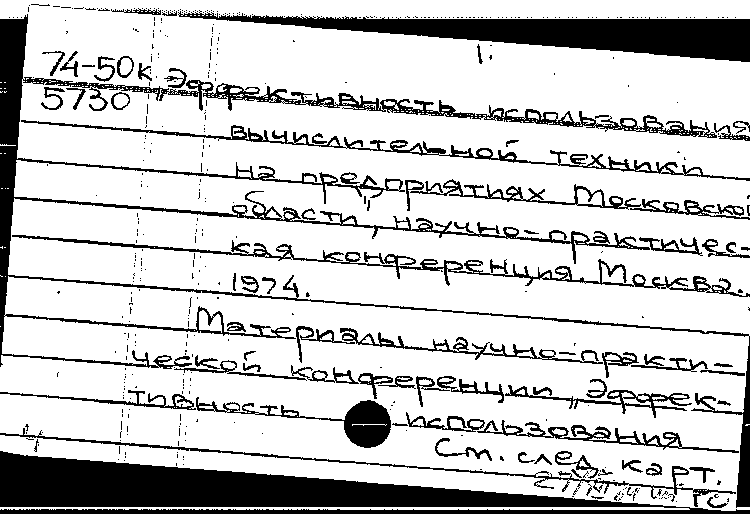 1.
74-50к „Эффективность использования
5730
вычислительной техники
на предприятиях Московской
области", научно-практичес-
кая конференция. Москва.
1974.
Материалы научно-практи-
ческой конференции „Эффек-
тивность использования
См. след. карт.
4
ГС